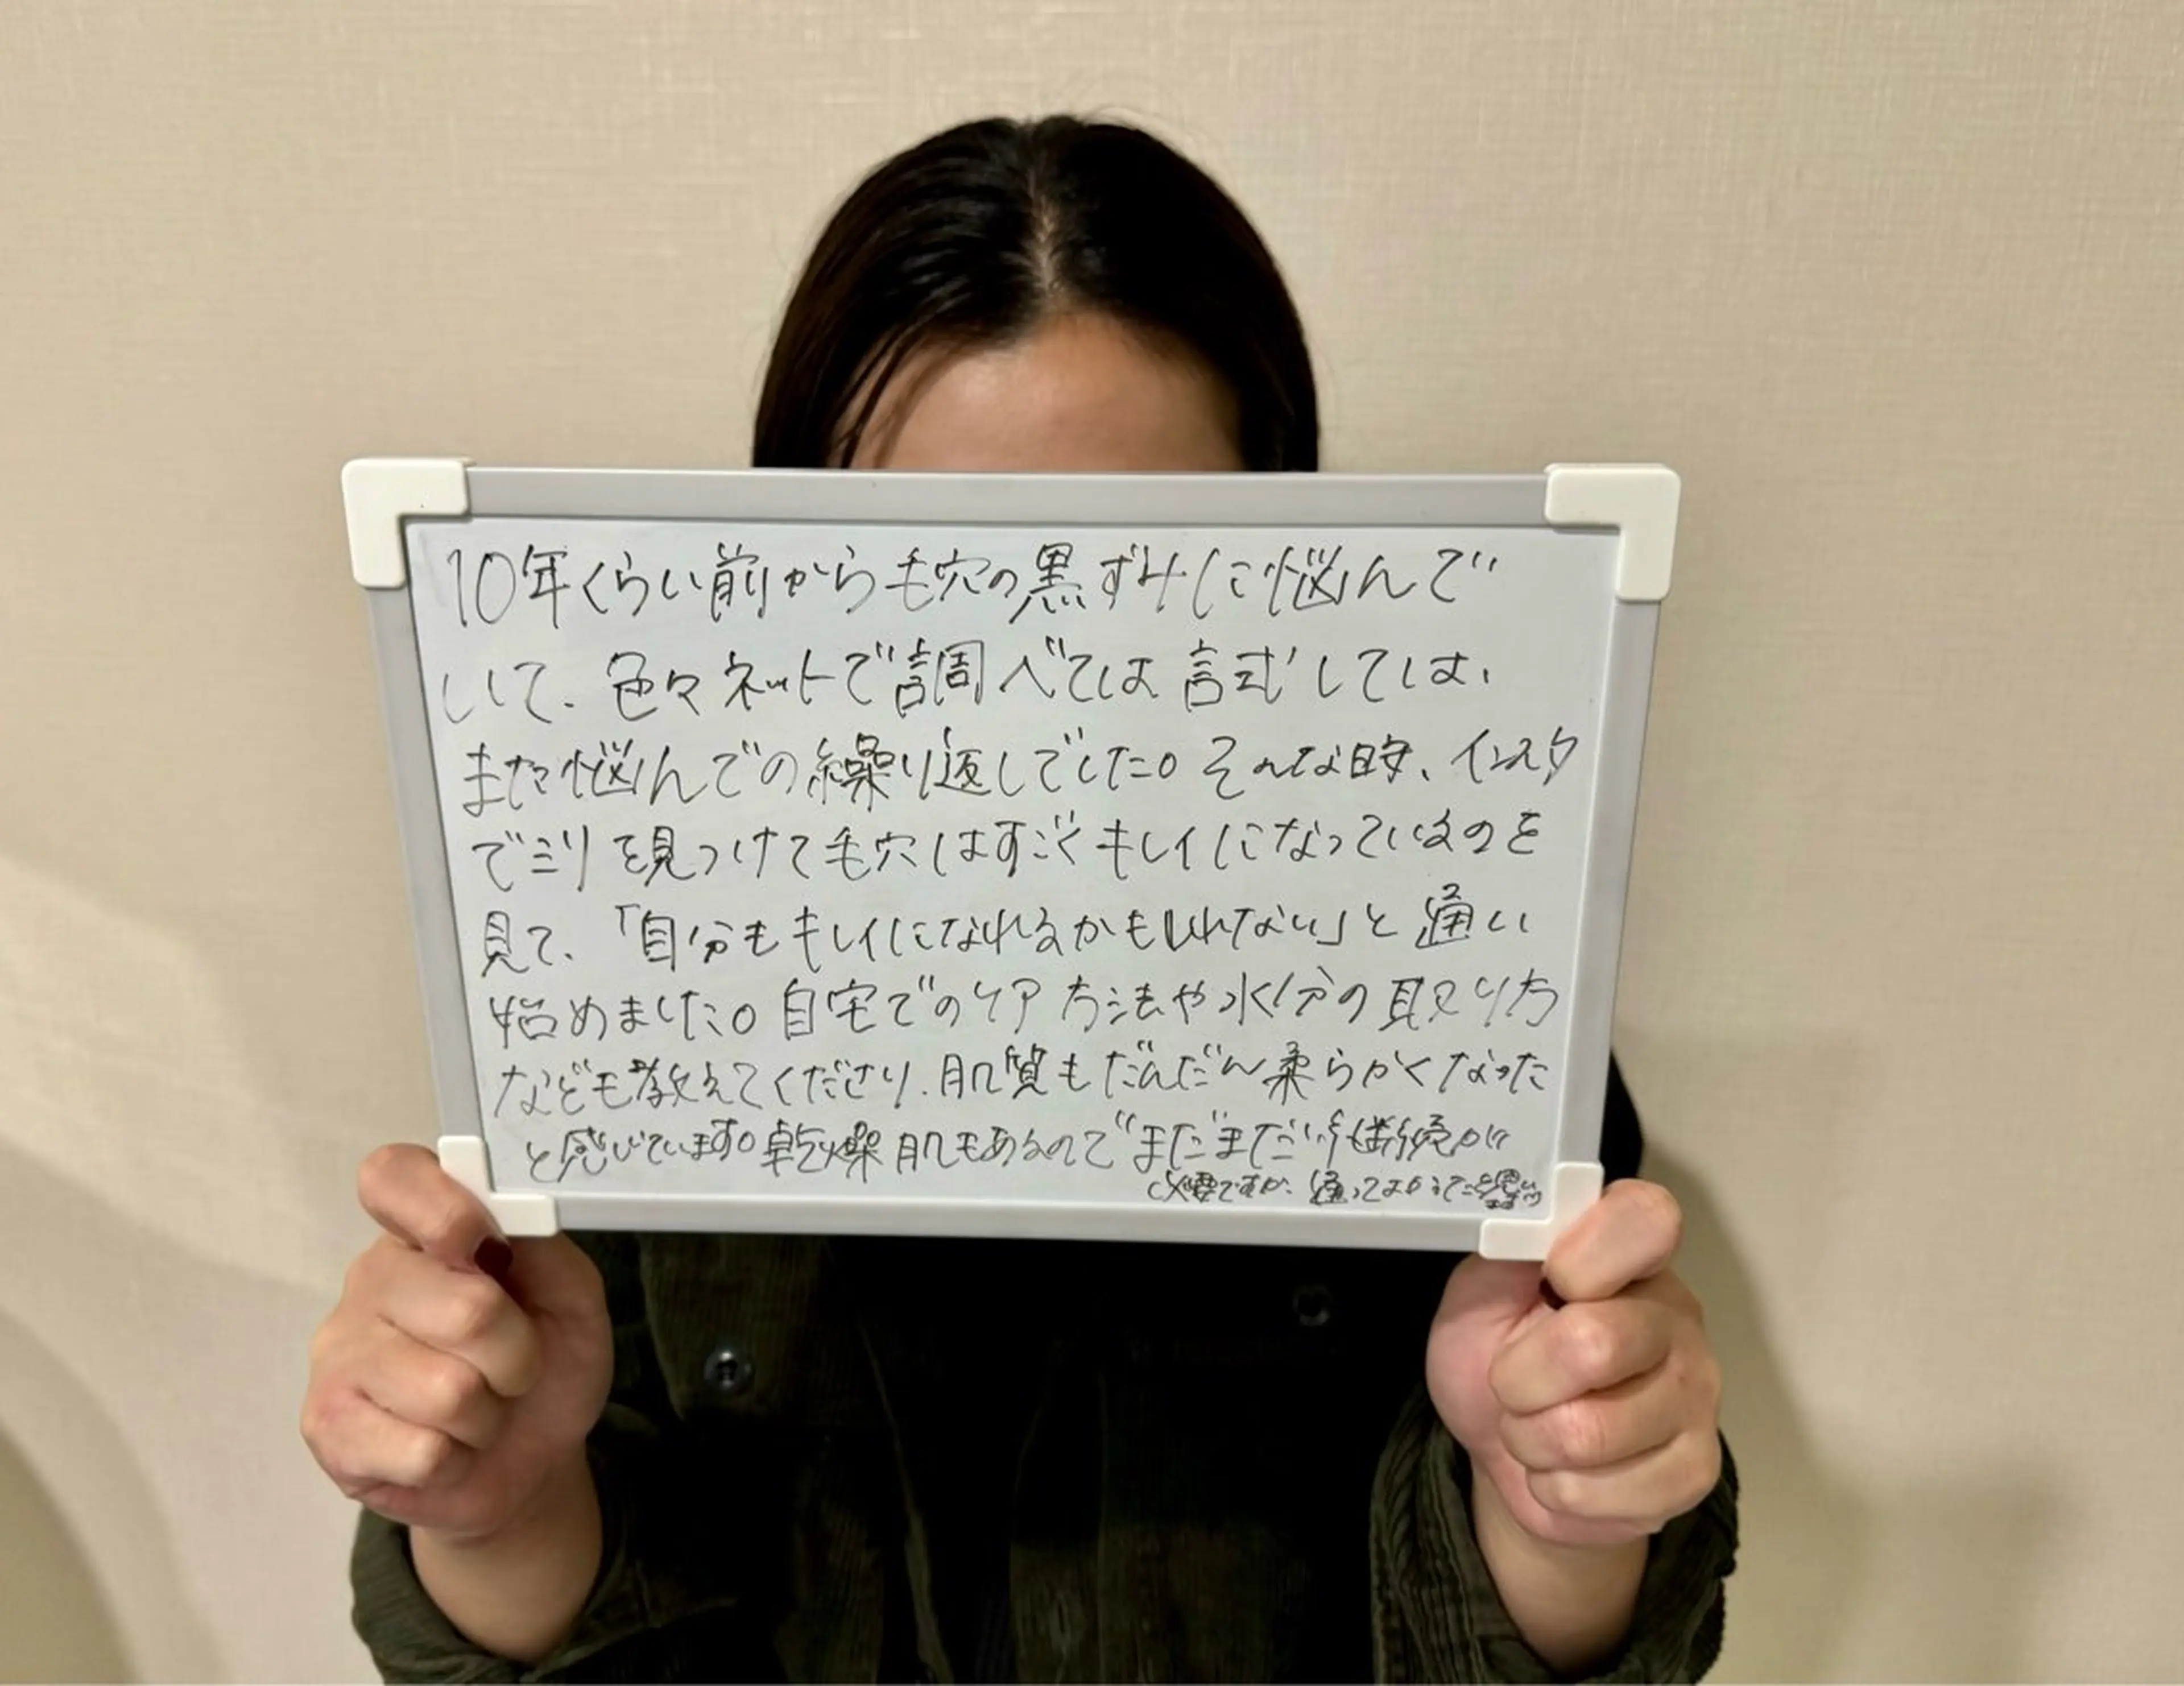 10年くらい前から毛穴の黒ずみに悩んで
いて、色々ネットで調べては試しては、
また悩んでの繰り返しでした。そんな時、インスタ
でミリを見つけて毛穴はすごくキレイになっているのを
見て、「自分もキレイになれるかもしれない」と通い
始めました。自宅でのケア方法や水分の取り方
なども教えてくださり、肌質もだんだん柔らかくなった
と感じています。乾燥肌もあるのでまだまだ継続が
必要ですが、通ってよかったと思い
ます